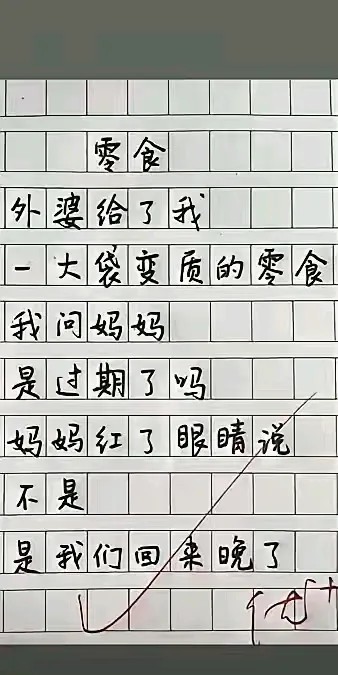 零食
外婆给了我
一大袋变质的零食
我问妈妈
是过期了吗
妈妈红了眼睛说
不是
是我们回来晚了
优+